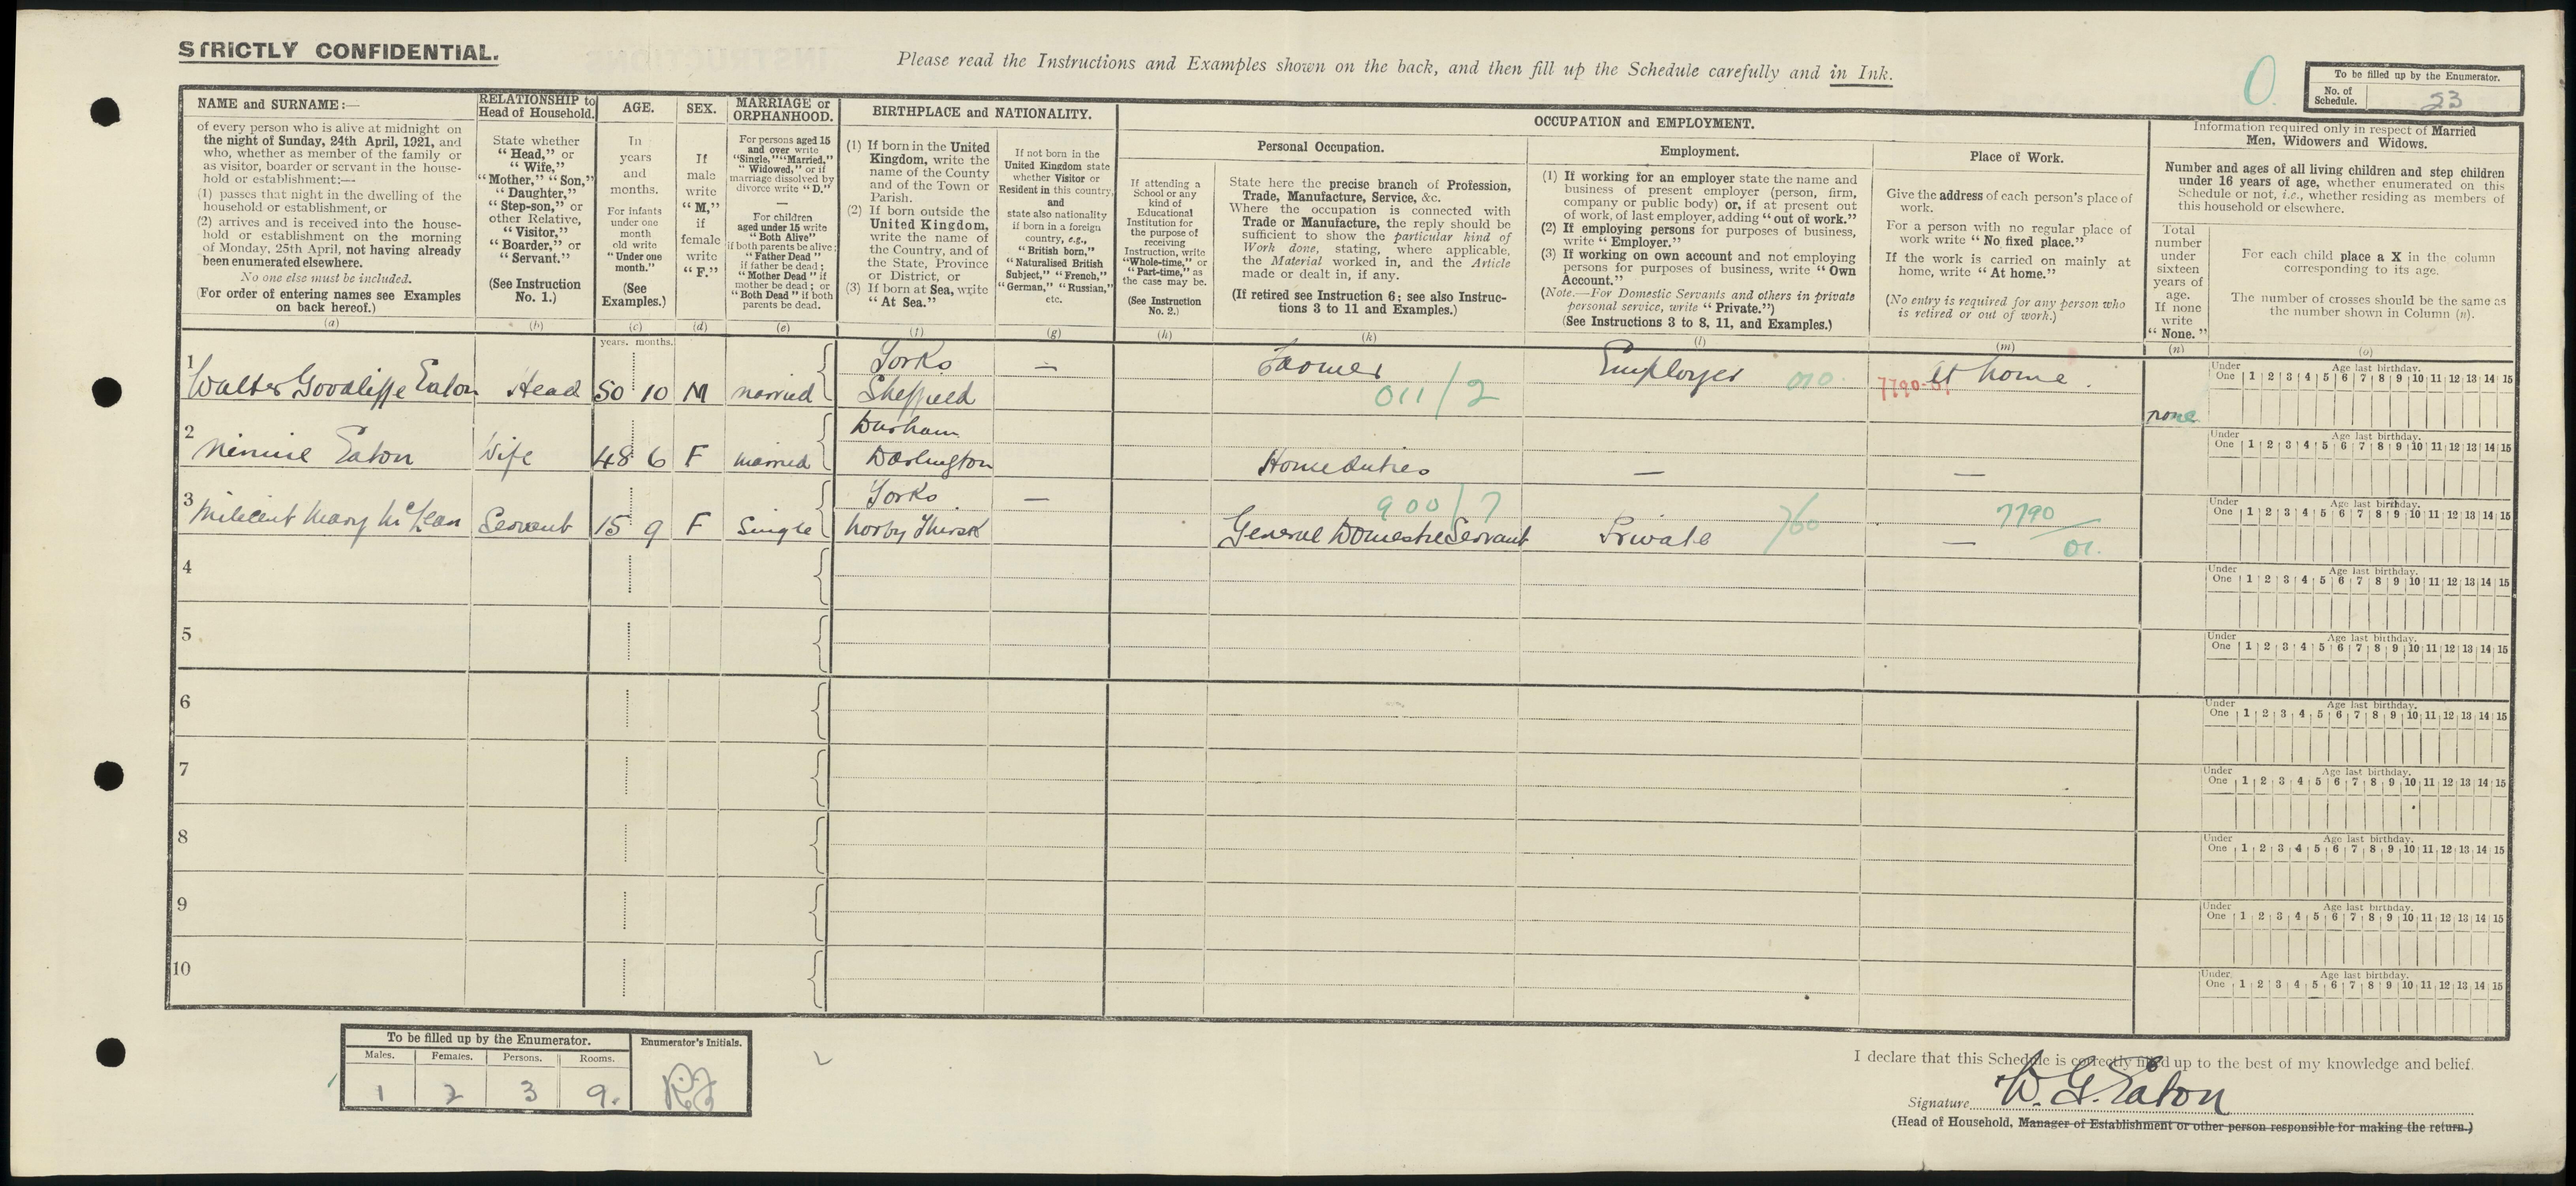 STRICTLY CONFIDENTIAL.
Please read the Instructions and Examples shown on the back, and then fill up the Schedule carefully and in Ink.
0
To be filled up by the Enumerator.
No. of Schedule. 23
NAME and SURNAME:—
of every person who is alive at midnight on
the night of Sunday, 24th April, 1921, and
who, whether as member of the family or
as visitor, boarder or servant in the house-
hold or establishment:—
(1) passes that night in the dwelling of the
household or establishment, or
(2) arrives and is received into the house-
hold or establishment on the morning
of Monday, 25th April, not having already
been enumerated elsewhere.
No one else must be included.
(For order of entering names see Examples
on back hereof.)
(a)
RELATIONSHIP to
Head of Household.
State whether
"Head," or
"Wife,"
"Mother," "Son,"
"Daughter,"
"Step-son," or
other Relative,
"Visitor,"
"Boarder," or
"Servant."
(See Instruction
No. 1.)
(b)
AGE.
In
years
and
months.
For infants
under one
month
old write
"Under one
month."
(See
Examples.)
(c)
SEX.
If
male
write
"M,"
if
female
write
"F."
(d)
MARRIAGE or
ORPHANHOOD.
For persons aged 15
and over write
"Single," "Married,"
"Widowed," or if
marriage dissolved by
divorce write "D."
—
For children
aged under 15 write
"Both Alive"
if both parents be alive;
"Father Dead"
if father be dead;
"Mother Dead" if
mother be dead; or
"Both Dead" if both
parents be dead.
(e)
BIRTHPLACE and NATIONALITY.
(1) If born in the United
Kingdom, write the
name of the County
and of the Town or
Parish.
(2) If born outside the
United Kingdom,
write the name of
the Country, and of
the State, Province
or District, or
(3) If born at Sea, write
"At Sea."
(f)
If not born in the
United Kingdom state
whether Visitor or
Resident in this country,
and
state also nationality
if born in a foreign
country, e.g.,
"British born,"
"Naturalised British
Subject," "French,"
"German," "Russian,"
etc.
(g)
OCCUPATION and EMPLOYMENT.
Personal Occupation.
If attending a
School or any
kind of
Educational
Institution for
the purpose of
receiving
Instruction, write
"Whole-time," or
"Part-time," as
the case may be.
(See Instruction
No. 2.)
(h)
State here the precise branch of Profession,
Trade, Manufacture, Service, &c.
Where the occupation is connected with
Trade or Manufacture, the reply should be
sufficient to show the particular kind of
Work done, stating, where applicable,
the Material worked in, and the Article
made or dealt in, if any.
(If retired see Instruction 6; see also Instruc-
tions 3 to 11 and Examples.)
(k)
Employment.
(1) If working for an employer state the name and
business of present employer (person, firm,
company or public body) or, if at present out
of work, of last employer, adding "out of work."
(2) If employing persons for purposes of business,
write "Employer."
(3) If working on own account and not employing
persons for purposes of business, write "Own
Account."
(Note.—For Domestic Servants and others in private
personal service, write "Private.")
(See Instructions 3 to 8, 11, and Examples.)
(l)
Place of Work.
Give the address of each person's place of
work.
For a person with no regular place of
work write "No fixed place."
If the work is carried on mainly at
home, write "At home."
(No entry is required for any person who
is retired or out of work.)
(m)
Information required only in respect of Married
Men, Widowers and Widows.
Number and ages of all living children and step children
under 16 years of age, whether enumerated on this
Schedule or not, i.e., whether residing as members of
this household or elsewhere.
Total
number
under
sixteen
years of
age.
If none
write
"None."
(n)
For each child place a X in the column
corresponding to its age.
The number of crosses should be the same as
the number shown in Column (n).
(o)
years. months.
1 Walter Goodliffe Eaton Head 50 10 M married Yorks Sheffield — Farmer 011/2 Employer 010 At home. 7790-01 none
Under One 1 2 3 4 5 6 7 8 9 10 11 12 13 14 15 Age last birthday.
2 Minnie Eaton Wife 48 6 F married Durham Darlington Home duties — —
Under One 1 2 3 4 5 6 7 8 9 10 11 12 13 14 15 Age last birthday.
3 Milicent Mary McLean Servant 15 9 F Single Yorks Norby Thirsk — 900/7 General Domestic Servant Private 760 — 7790/01.
Under One 1 2 3 4 5 6 7 8 9 10 11 12 13 14 15 Age last birthday.
4
Under One 1 2 3 4 5 6 7 8 9 10 11 12 13 14 15 Age last birthday.
5
Under One 1 2 3 4 5 6 7 8 9 10 11 12 13 14 15 Age last birthday.
6
Under One 1 2 3 4 5 6 7 8 9 10 11 12 13 14 15 Age last birthday.
7
Under One 1 2 3 4 5 6 7 8 9 10 11 12 13 14 15 Age last birthday.
8
Under One 1 2 3 4 5 6 7 8 9 10 11 12 13 14 15 Age last birthday.
9
Under One 1 2 3 4 5 6 7 8 9 10 11 12 13 14 15 Age last birthday.
10
Under One 1 2 3 4 5 6 7 8 9 10 11 12 13 14 15 Age last birthday.
To be filled up by the Enumerator.
Enumerator's Initials.
Males. Females. Persons. Rooms.
1 2 3 9.
I declare that this Schedule is correctly filled up to the best of my knowledge and belief.
Signature W. G. Eaton
(Head of Household, Manager of Establishment or other person responsible for making the return.)